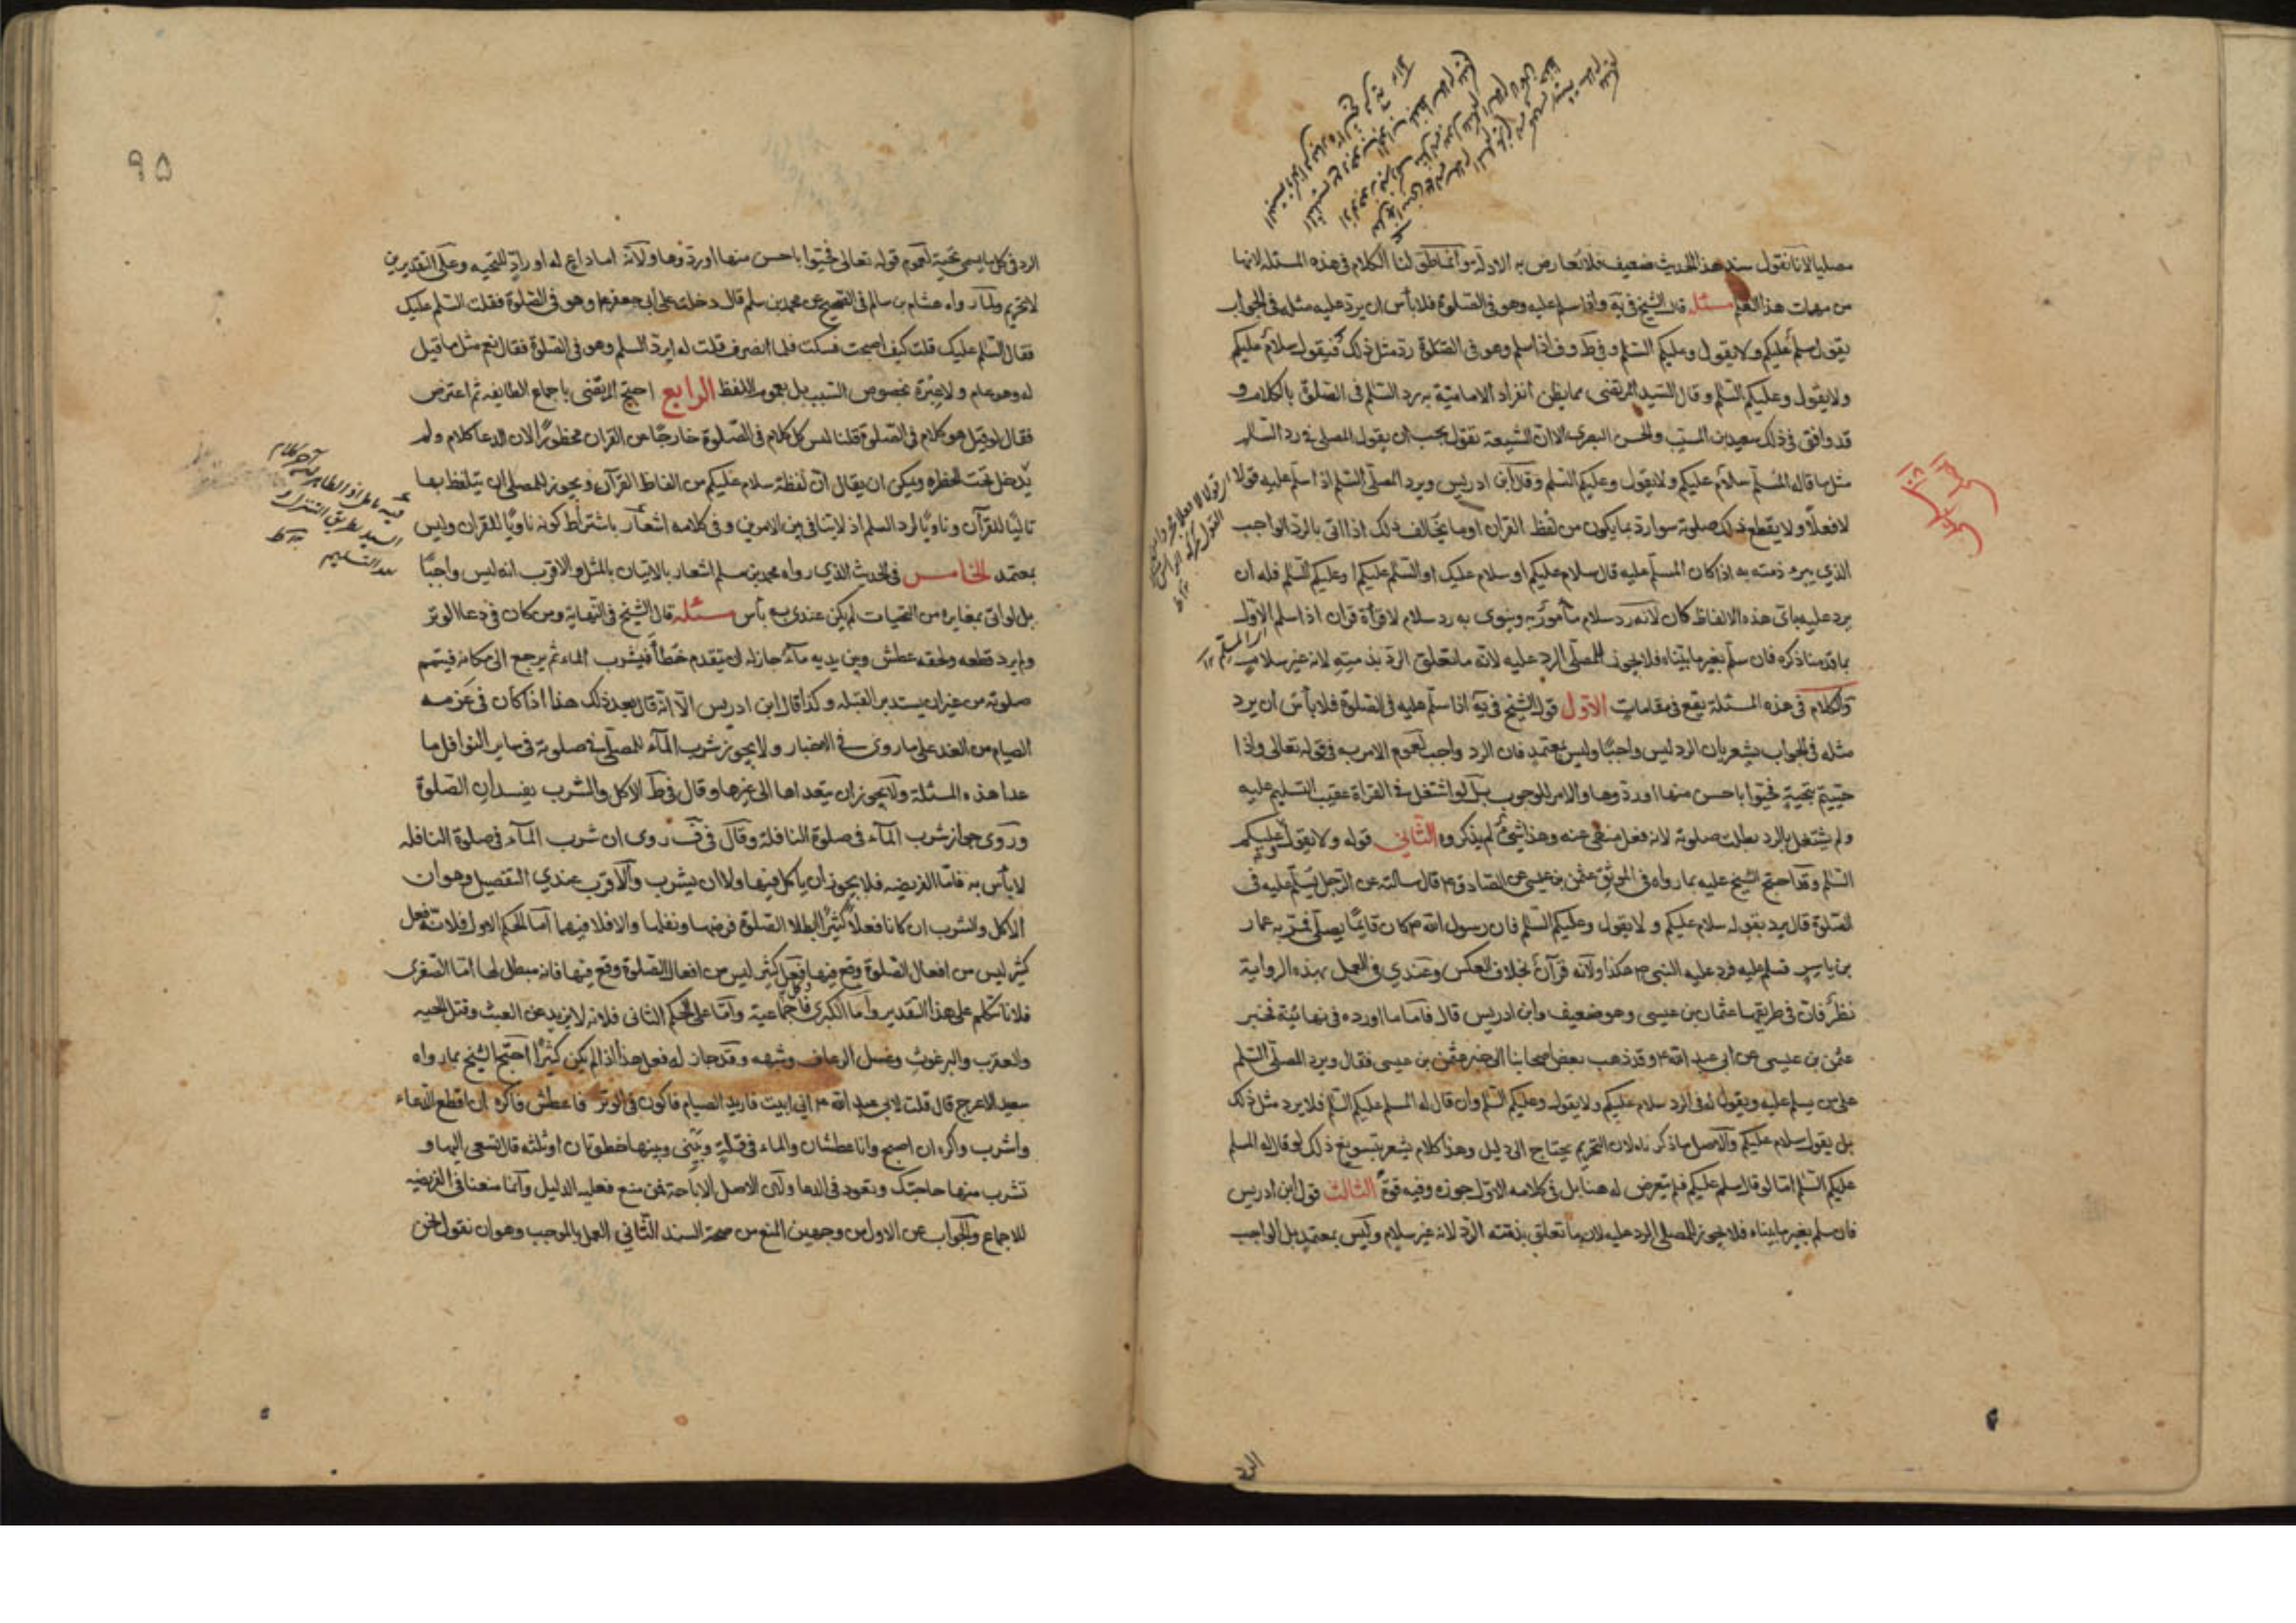 مصليا لانا نقول سند هذا الحديث ضعيف فلا تعارض به الادلة وانما طولنا الكلام فى هذه المسئلة لانها
من مهمات هذا العلم مسئلة قال الشيخ فى ية واذا سلم عليه وهو فى الصلوة فلا بأس ان يرد عليه مثله فى الجواب
يقول سلام عليكم ولا يقول وعليكم السلم و فى ط و ف اذا سلم وهو فى الصلوة رد مثل ذلك فيقول سلام عليكم
ولا يقول وعليكم السلم وقال السيد المرتضى مما يظن انفراد الامامية به رد السلم فى الصلوة بالكلام و
قد وافق فى ذلك سعيد بن المسيب والحسن البصرى الا ان الشيعة تقول يجب ان يقول المصلى فى رد السلم
مثل ما قاله المسلم سلام عليكم ولا يقول وعليكم السلم وقال ابن ادريس ويرد المصلى السلم اذا سلم عليه قولا
لا فعلا ولا يقطع ذلك صلوته سوا رد بما يكون من لفظ القران او ما يخالف ذلك اذا اتى بالرد الواجب
الذي يبرء ذمته به اذا كان المسلم عليه قال سلام عليكم او سلام عليك او السلم عليكم او عليكم السلم فله ان
يرد عليه باى هذه الالفاظ كان لانه رد سلام مأمور به وينوى به رد سلام لا قرأة قران اذا سلم الاول
بما قدمنا ذكره فان سلم بغير ما بيناه فلا يجوز للمصلى الرد عليه لانه ما تعلق الرد بذمته لانه غير سلام
والكلام فى هذه المسئلة يقع فى مقامات الاول قول الشيخ فى ية اذا سلم عليه فى الصلوة فلا بأس ان يرد
مثله فى الجواب يشعر بان الرد ليس واجبا وليس بمعتمد فان الرد واجب لعموم الامر به فى قوله تعالى واذا
حييتم بتحية فحيوا باحسن منها او ردوها والامر للوجوب بل لو اشتغل فى القراة عقيب التسليم عليه
ولم يشتغل بالرد بطلت صلوته لانه فعل منهى عنه وهذا شئ لم يذكروه الثاني قوله ولا يقول وعليكم
السلم وقد احتج الشيخ عليه بما رواه فى الموثق عثمن بن عيسى عن الصادق ع قال سالته عن الرجل يسلم عليه فى
الصلوة قال يرد بقوله سلام عليكم ولا يقول وعليكم السلم فان رسول الله ص كان قايما يصلى فمر به عمار
بن ياسر فسلم عليه فرد عليه النبى ص هكذا ولانه قرآن بخلاف العكس وعندي فى العمل بهذه الرواية
نظر فان فى طريقها عثمان بن عيسى وهو ضعيف وابن ادريس قال فاما ما اورده فى نهائيته فخبر
عثمن بن عيسى عن ابى عبد الله ع وقد ذهب بعض اصحابنا الى خبر عثمن بن عيسى فقال ويرد المصلى السلم
على من يسلم عليه ويقول له فى الرد سلام عليكم ولا يقول وعليكم السلم وان قال له المسلم عليكم السلم فلا يرد مثل ذلك
بل يقول سلام عليكم والاصل ما ذكرناه لان التحريم يحتاج الى دليل وهذا كلام يشعر بتسويغ ذلك لو قال له المسلم
عليكم السلم اما لو قال سلم عليكم فلم يتعرض له هنا بل فى كلامه الاول جوزه وفيه قوة الثالث قول ابن ادريس
فان سلم بغير ما بيناه فلا يجوز للمصلى الرد عليه لانه ما تعلق بذمته الرد لانه غير سلام وليس بمعتمد بل الواجب
الرد
٩٥
الرد فى كل ما يسمى تحية لعموم قوله تعالى فحيوا باحسن منها او ردوها ولانه اما داع له او راد للتحيه وعلى التقديرين
لا تحريم ولما رواه هشام بن سالم فى الصحيح عن محمد بن سلم قال دخلت على ابى جعفر ع وهو فى الصلوة فقلت السلم عليك
فقال السلم عليك قلت كيف اصبحت فسكت فلما انصرف قلت له ايرد السلم وهو فى الصلوة فقال نعم مثل ما قيل
له وهو عام ولا عبرة بخصوص السبب بل بعموم اللفظ الرابع احتج المرتضى باجماع الطايفه ثم اعترض
فقال لو قيل هو كلام فى الصلوة قلنا ليس كل كلام فى الصلوة خارجا عن القران محظورا لان الدعا كلام ولم
يدخل تحت الحظره ويمكن ان يقال ان لفظة سلام عليكم من الفاظ القرآن ويجوز للمصلى ان يتلفظ بها
تاليا للقرآن وناويا لرد السلم اذ لا يتنافى بين الامرين وفى كلامه اشعار باشتراط كونه ناويا للقران وليس
بمعتمد الخامس فى الحديث الذي رواه محمد بن مسلم اشعار بالاتيان بالمثل والاقرب انه ليس واجبا
بل لو اتى بمغايره من التحيات لم يكن عندى به بأس مسئلة قال الشيخ فى النهاية ومن كان فى دعا الوتر
ولم يرد قطعه ولحقه عطش وبين يديه ماء جاز له ان يتقدم خطا فيشرب الماء ثم يرجع الى مكانه فيتمم
صلوته من غير ان يستدبر القبله وكذا قال ابن ادريس الا انه قال بعد ذلك هذا اذا كان فى عزمه
الصيام من الغد على ما روى فى الاخبار ولا يجوز شرب الماء للمصلى فى صلوته فى ساير النوافل ما
عدا هذه المسئلة ولا يجوز ان يتعداها الى غيرها وقال فى ط الاكل والشرب يفسدان الصلوة
وروى جواز شرب الماء فى صلوة النافلة وقال فى ف روى ان شرب الماء فى صلوة النافله
لا بأس به فاما الفريضه فلا يجوز ان ياكل فيها ولا ان يشرب والاقرب عندي التفصيل وهو ان
الاكل والشرب ان كانا فعلا كثيرا ابطلا الصلوة فرضها ونفلها والا فلا فيهما اما الحكم الاول فلانه فعل
كثير ليس من افعال الصلوة وقع فيها وكل فعل كثير ليس من افعال الصلوة وقع فيها فانه مبطل لها اما الصغرى
فلانا نتكلم على هذا التقدير واما الكبرى فاجماعية واما على الحكم الثانى فلانه لا يزيد عن العبث وقتل الحيه
والعقرب والبرغوث وغسل الرعاف وشبهه وقد جاز له فعل هذا اذا لم يكن كثيرا احتج الشيخ بما رواه
سعيد الاعرج قال قلت لابى عبد الله ع انى ابيت فاريد الصيام فاكون فى الوتر فاعطش فاكره ان اقطع الدعاء
واشرب واكره ان اصبح وانا عطشان والماء فى قلة وبينى وبينها خطوتان او ثلثه قال تسعى اليها و
تشرب منها حاجتك وتعود فى الدعا ولان الاصل الاباحة فمن منع فعليه الدليل وانما منعنا فى الفريضيه
للاجماع والجواب عن الاول من وجهين المنع من صحة السند الثاني العمل بالموجب وهو ان نقول نحن